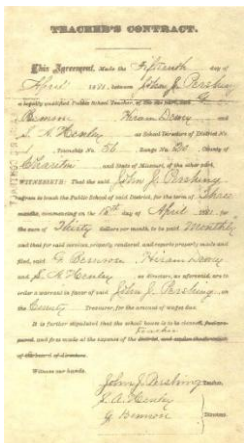 TEACHER'S CONTRACT.
This Agreement, Made the Fifteenth day of
April 1881, between John J. Pershing
a legally qualified Public School Teacher, of the one part, and G
Bennon Hiram Dowry and
S. A. Henley as School Directors of District No.
, Township No. 56 Range No. 20, County of
Chariton and State of Missouri, of the other part,
WITNESSETH: That the said John J. Pershing
agrees to teach the Public School of said District, for the term of Three
months, commencing on the 18th day of April 1881, for
the sum of Thirty dollars per month, to be paid Monthly
and that for said services, properly rendered, and reports properly made and
filed, said G Bennon Hiram
and S. A. Henley as directors, as aforesaid, are to
order a warrant in favor of said John J. Pershing, on
the County Treasurer, for the amount of wages due.
It is further stipulated that the school house is to be cleaned,
teacher
and fires made at the expense of the district, and under the
of the board of directors.
Witness our hands.
John J Pershing Teacher.
S. A. Henley
G Bennon Directors.